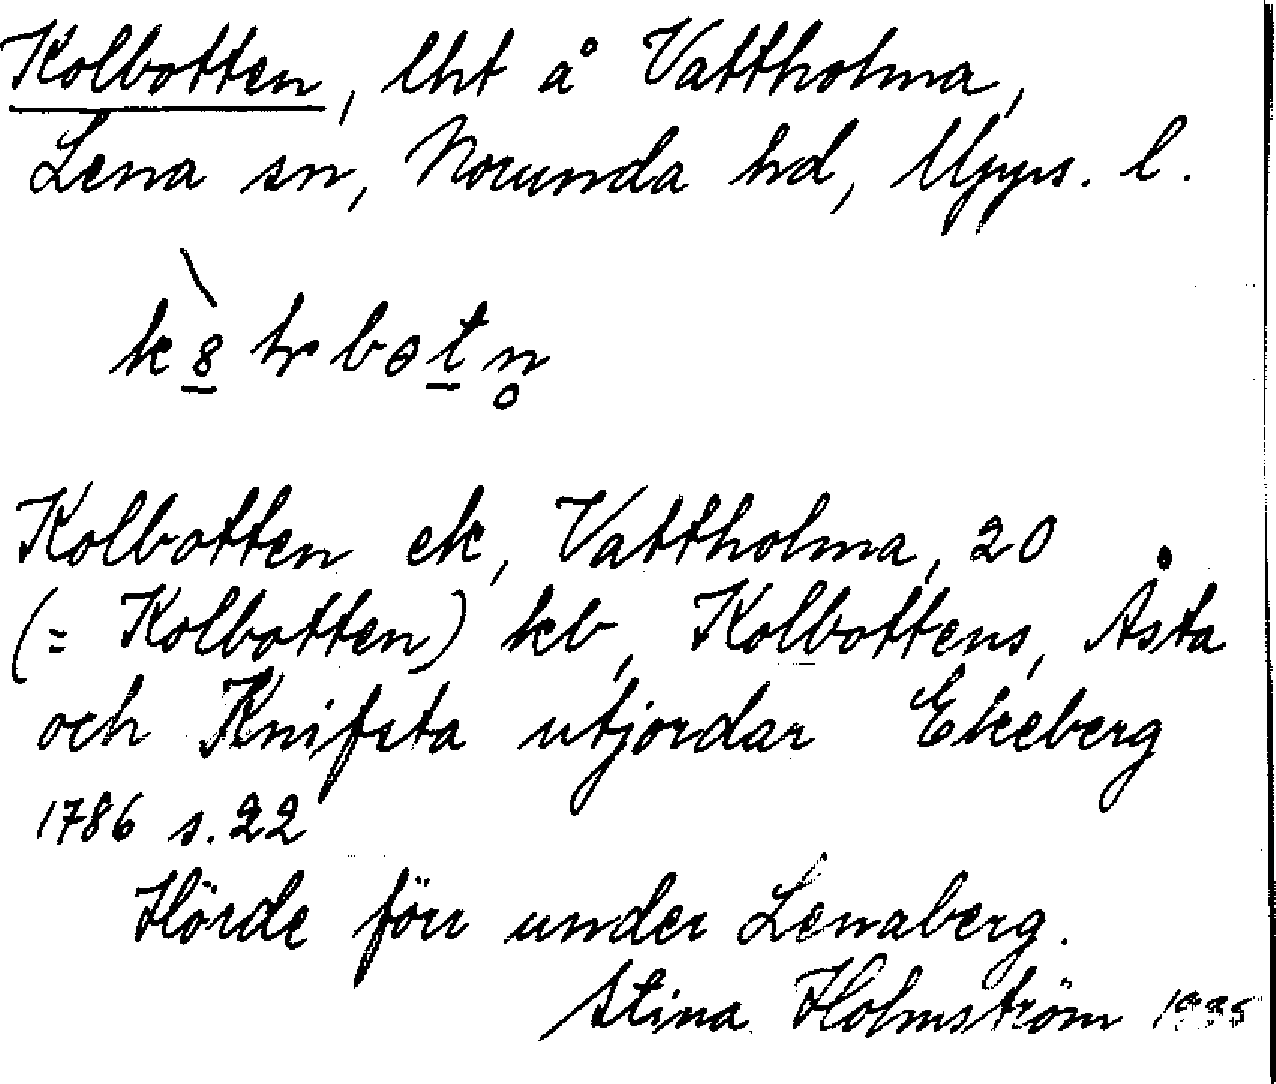 Kolbotten, lht å Vattholma,
Lena sn, Norunda hd, Upps. l.
Kolbotten ek, Vattholma, 20
(= Kolbotten) kb, Kolbottens, Åsta
och Knifsta utjordar Ekeberg
1786 s. 22
Hörde förr under Lenaberg.
Stina Holmström 1935